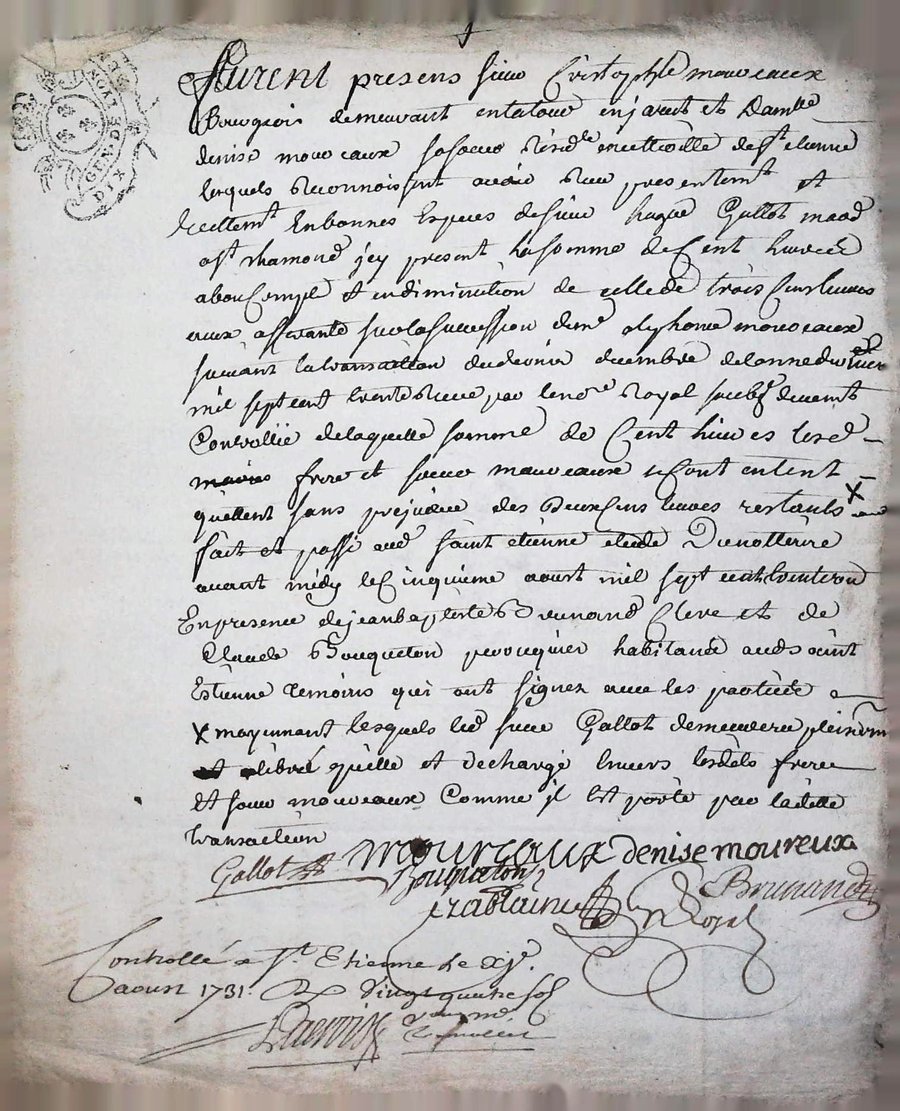 GEN DE LYON
DIX
furent presens sieur Cristophle moureaux
Bourgeois demeurant en et Damlle
denise moureaux sa soeur resid.te en cette ville de st etienne
lesquels Reconnoissent avoir Reçu presentemt et
reellemt En bonnes Espeçes de sieur hugue Gallot mard
a st chamond jcy present la somme de Cent livres
a bon Compte et en diminution de celle de trois Cens livres
eux sur la succession de moureaux
suivant la transaction du dernier decembre de l'annee
mil sept cent trente Reçue par le nore Royal soubsé devemt
Controllée de laquelle somme de Cent livres lesd
frere et soeur moureaux se Sont Content
quittent sans prejudice des deux Cens livres restants X
fait et passé aud saint etienne etude Du nottaire
avant midy le Cinquieme aoust mil sept cent trente un
En presence de jean baptiste Brunand Clerc et de
Claude Bouqueton perruquier habitans aud saint
Estienne temoins qui ont signez avec les parties
X moyennant lesquels led sieur Gallot demeurera pleinem
et libre quitte et dechargé Envers lesdits frere
Et soeur moureaux Comme jl Est porté par laditte
transaction
Gallot moureaux denise moureux
Bouqueton Brunand
Royal
Controllé a St Etienne le xje.
aoust 1731. R Vingt quatre sols
Lacroix